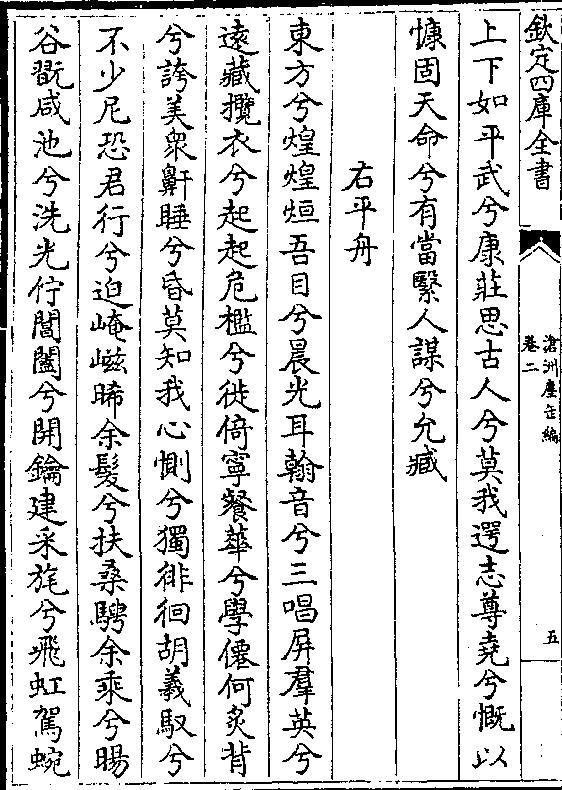 欽定四庫全書
滄洲塵缶編
卷二
五
上下如平武兮康莊思古人兮莫我遻志尊堯兮慨以
慷固天命兮有當繄人謀兮允臧
右平舟
東方兮煌煌烜吾目兮晨光耳翰音兮三唱屏羣英兮
遠藏攬衣兮起起危檻兮徙倚寧餐華兮學僊何炙背
兮誇美衆鼾睡兮昏莫知我心惻兮獨徘徊胡羲馭兮
不少尼恐君行兮迫崦嵫晞余髮兮扶桑騁余乘兮暘
谷翫咸池兮洗光佇閶闔兮開鑰建采旄兮飛虹駕蜿